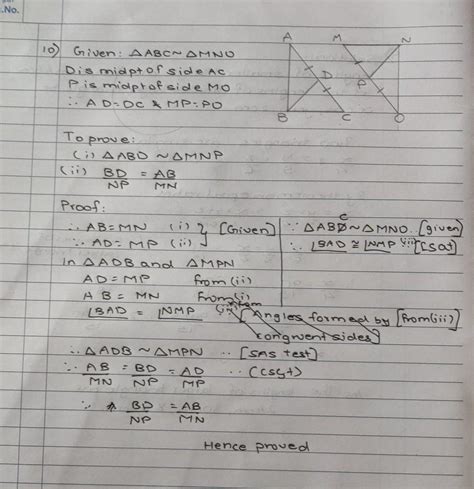 .No.
A M N
10) Given: △ABC~△MNO
D is midpt of side AC
P is midpt of side MO
∴ AD=DC & MP=PO
D P
B C O
To prove:
(i) △ABD ~ △MNP
(ii) BD/NP = AB/MN
Proof:
∴ AB=MN (i) } [Given]
∵ AD=MP (ii)
∵ △ABC~△MNO..[given]
∴ ∠BAD ≅ ∠NMP (iii) [csat]
In △ADB and △MPN
AD=MP from(ii)
AB=MN from(i)
∠BAD = ∠NMP [Angles formed by congruent sides] [from(iii)]
∴ △ADB~△MPN .. [SAS test]
∴ AB/MN = BD/NP = AD/MP .. (csst)
∴ BD/NP = AB/MN
Hence proved